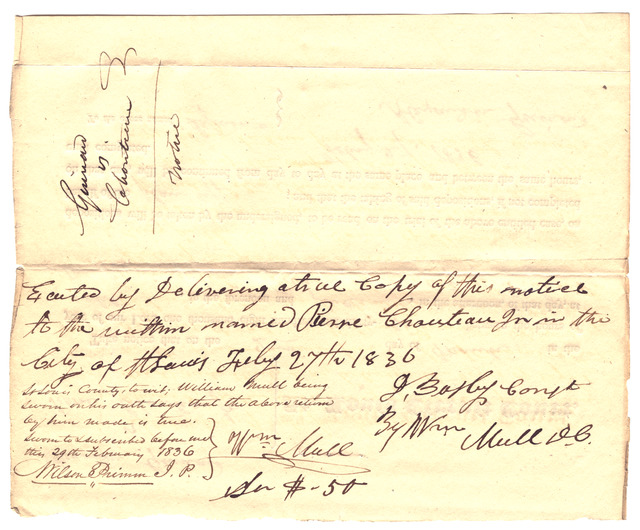 vs
Chouteau
Notice
Excuted by Delivering a true Copy of this notice
to the within named Pierre Chouteau Jr in the
City of St Louis Feby 27th 1836
St Louis County, to wit, William Mull being
sworn on his oath says that the above return
by him made is true.
Sworn to & subscribed before me
this 29th February 1836
Wilson Primm J. P.
Wm Mull
J, Const
By Wm Mull D.C.
Ser $ - 50